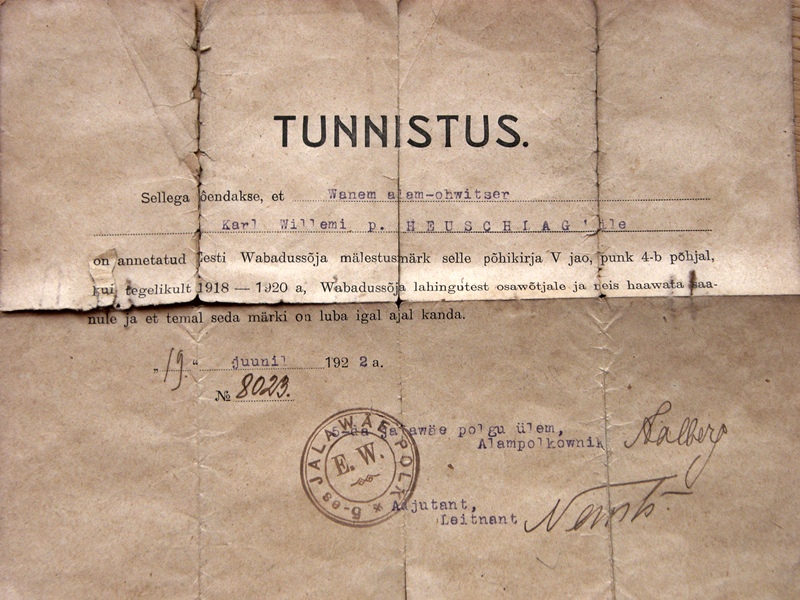 TUNNISTUS.
Sellega tõendakse, et Wanem alam-ohwitser
Karl Willemi p. HEUSCHLAG'ile
on annetatud Eesti Wabadussõja mälestusmärk selle põhikirja V jao, punk 4-b põhjal,
kui tegelikult 1918 — 1920 a, Wabadussõja lahingutest osawõtjale ja neis haawata saa-
nule ja et temal seda märki on luba igal ajal kanda.
„19.“ juunil 1922 a.
№ 8023.
5-da jalawäe polgu ülem,
Alampolkownik
5-es JALAWÄE POLK
E. W.
Adjutant,
Leitnant